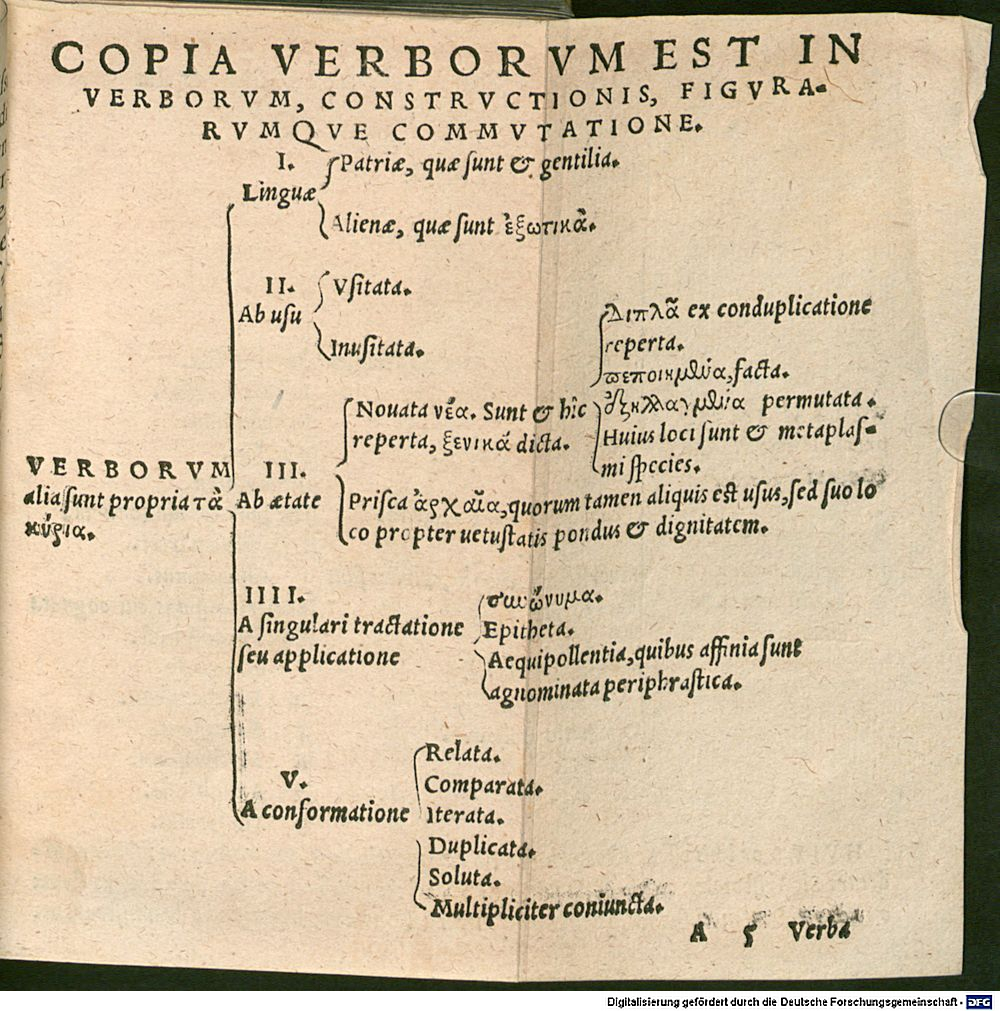 COPIA VERBORVM EST IN
VERBORVM, CONSTRVCTIONIS, FIGVRA-
RVMQVE COMMVTATIONE.
I.
Linguæ
Patriæ, quæ sunt & gentilia.
Alienæ, quæ sunt ἐξωτικὰ.
II.
Ab usu
Vsitata.
Inusitata.
VERBORVM
alia sunt propria τὰ
κύρια.
III.
Ab ætate
Nouata νέα. Sunt & hîc
reperta, ξενικά dicta.
Διπλᾶ ex conduplicatione
reperta.
πεποιημένα, facta.
ἐξηλλαγμένα permutata.
Huius loci sunt & metaplas-
mi species.
Prisca ἀρχαῖα, quorum tamen aliquis est usus, sed suo lo
co propter uetustatis pondus & dignitatem.
IIII.
A singulari tractatione
seu applicatione
συνώνυμα.
Epitheta.
Aequipollentia, quibus affinia sunt
agnominata periphrastica.
V.
A conformatione
Relata.
Comparata.
Iterata.
Duplicata.
Soluta.
Multipliciter coniuncta.
A 5 Verba
Digitalisierung gefördert durch die Deutsche Forschungsgemeinschaft - DFG